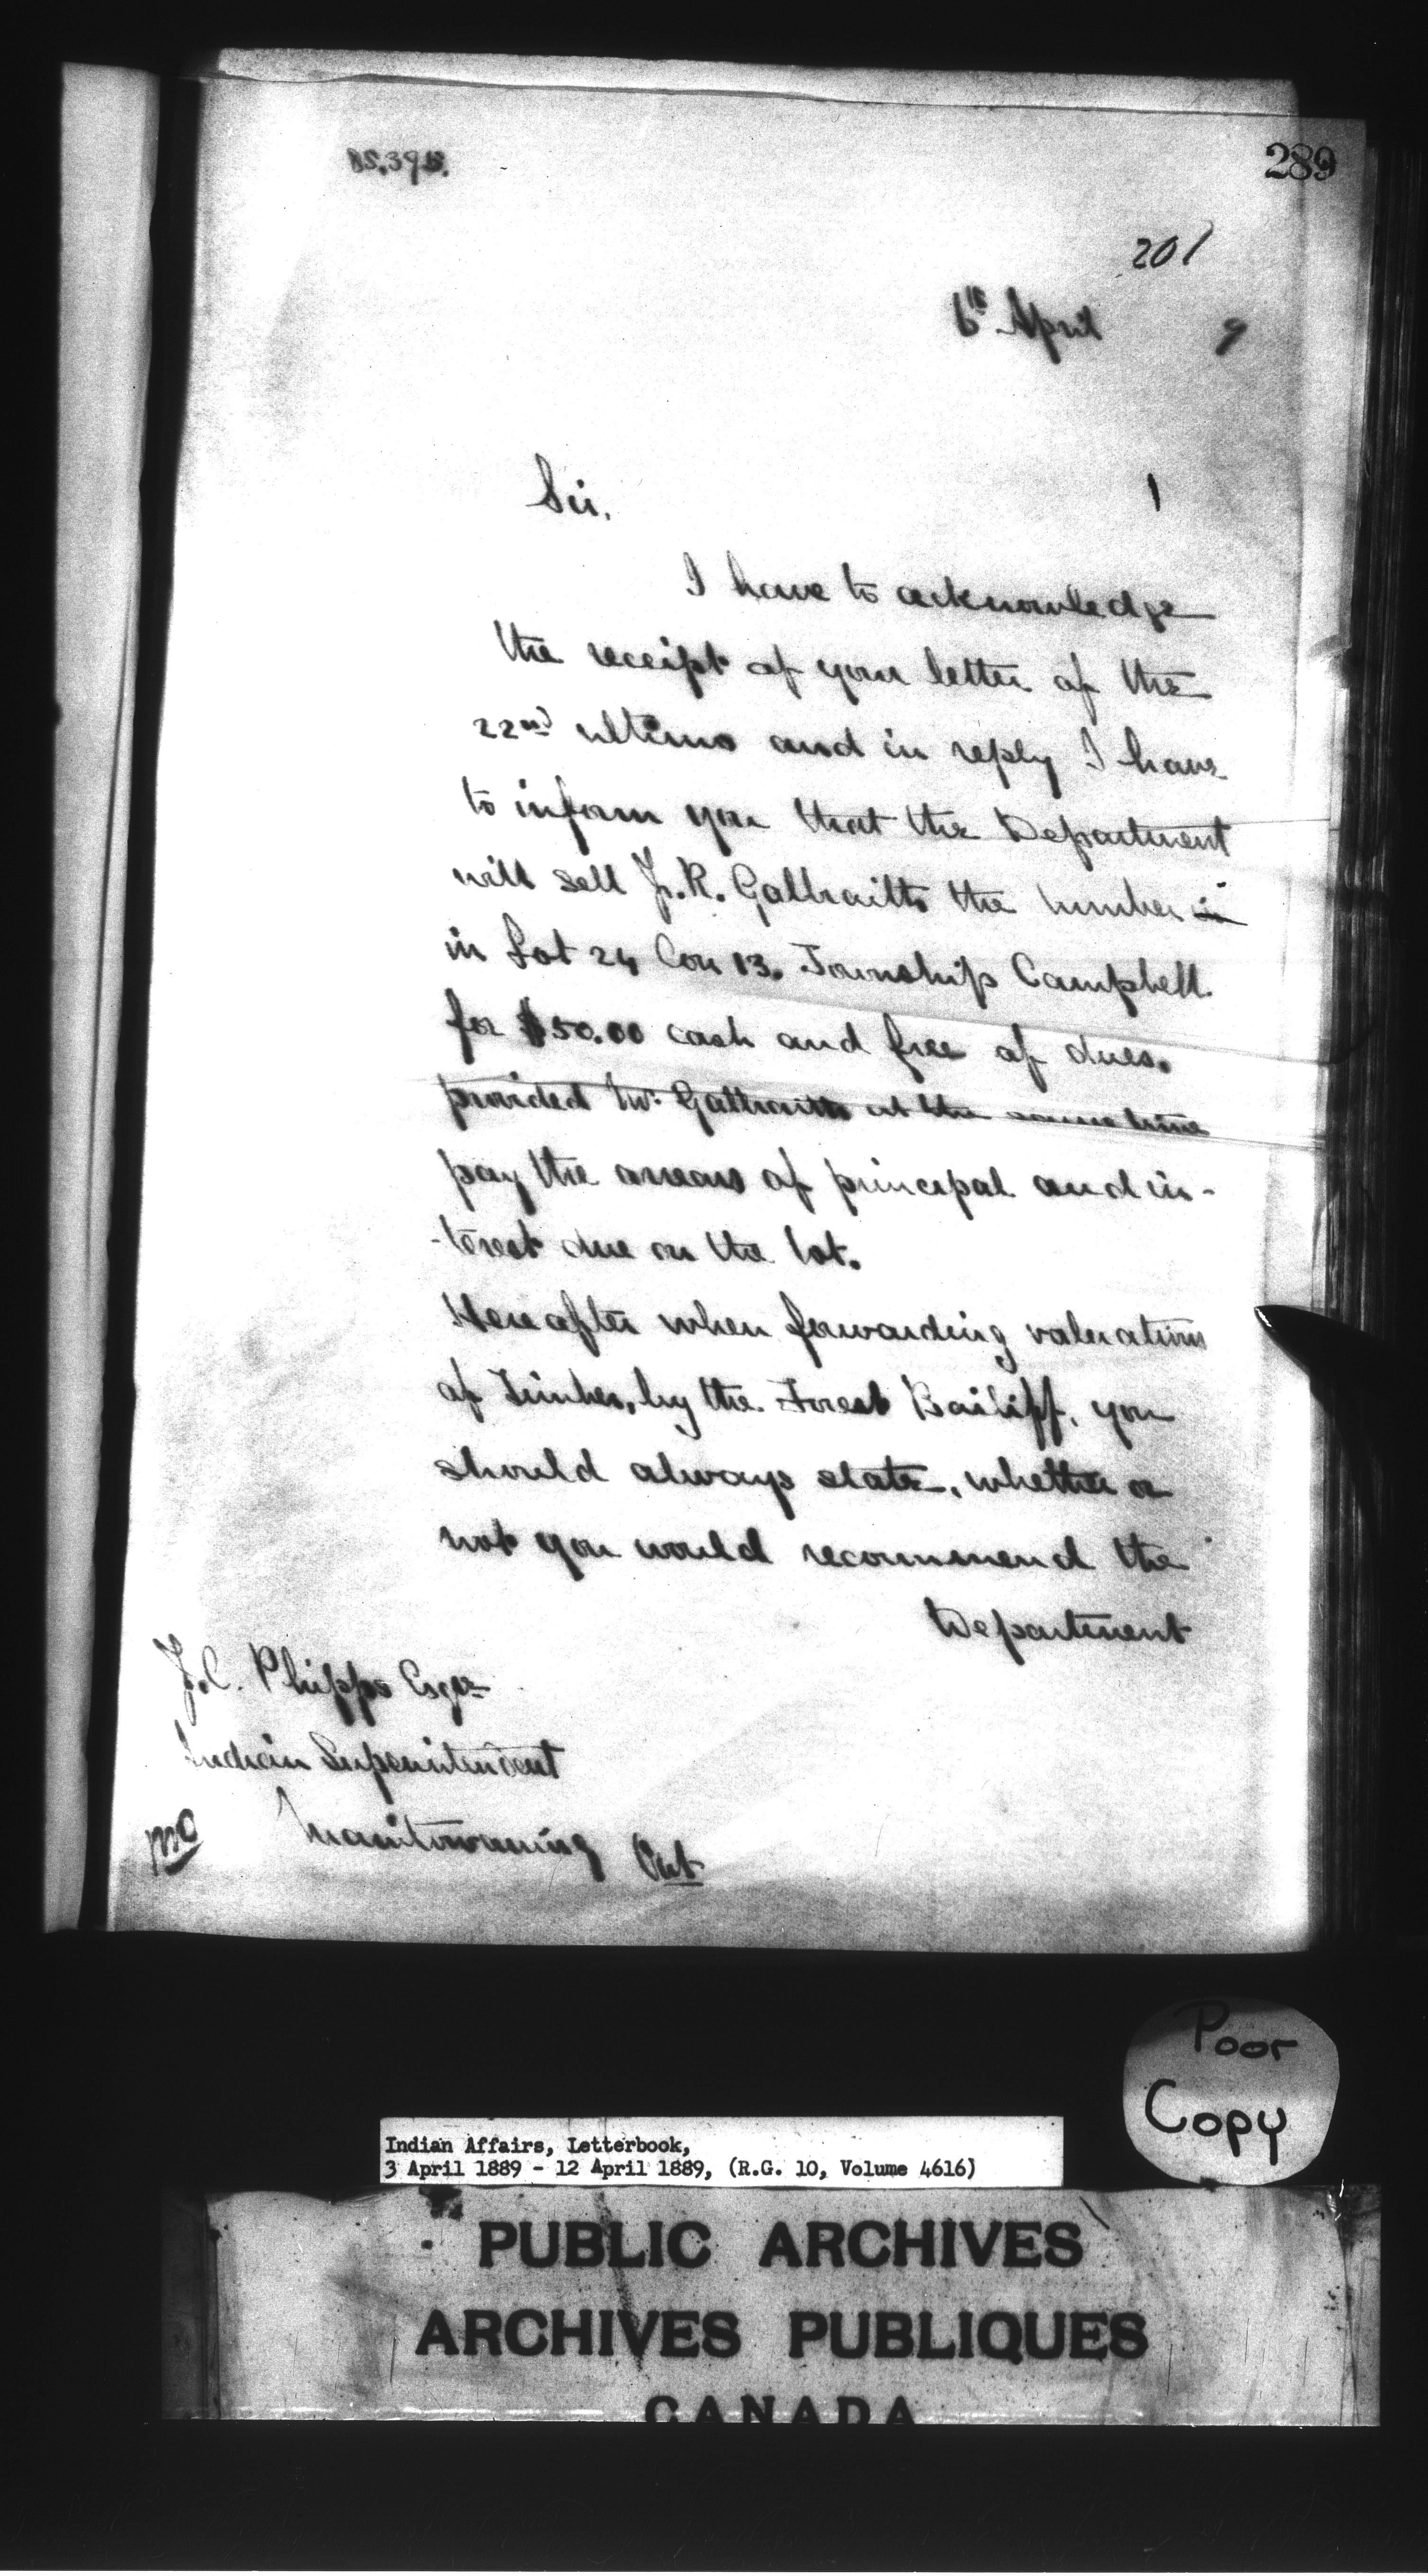 289
201
6th April 9
Sir,
I have to acknowledge
the receipt of your letter of the
22nd ultimo and in reply I have
to inform you that the Department
will sell J.R. Galbraith the timber in
in Lot 24 Con 13. Township Campbell.
for $50.00 cash and free of dues.
provided Mr. Galbraith at the same time
pay the arrears of principal and in-
-terest due on the lot.
Hereafter when forwarding valuations
of Timber, by the Forest Bailiff, you
should always state, whether or
not you would recommend the
Department
J.C. Phipps Esqre
Indian Superintendent
Manitowaning Ont
MO
Poor
Copy
Indian Affairs, Letterbook,
3 April 1889 - 12 April 1889, (R.G. 10, Volume 4616)
PUBLIC ARCHIVES
ARCHIVES PUBLIQUES
CANADA